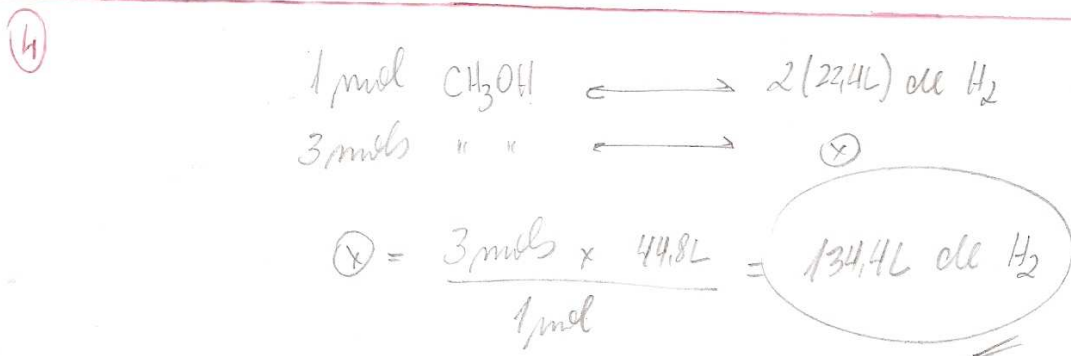 4
1 mol CH₃OH ⟷ 2(22,4L) de H₂
3 mols " " ⟷ x
x = 3 mols x 44,8L / 1 mol = 134,4L de H₂